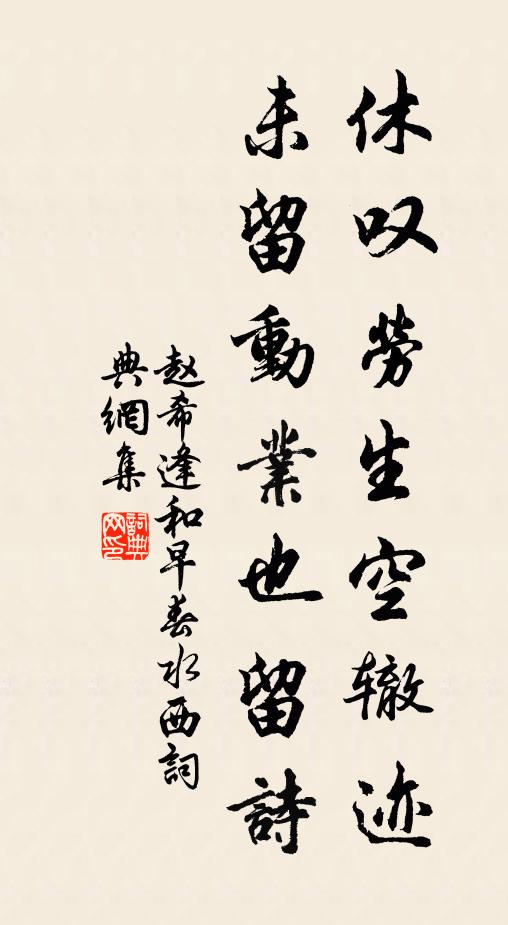 休叹勞生空辙迹
未留動業也留詩
赵希逢和早春水西詞
典網集
詞典網印